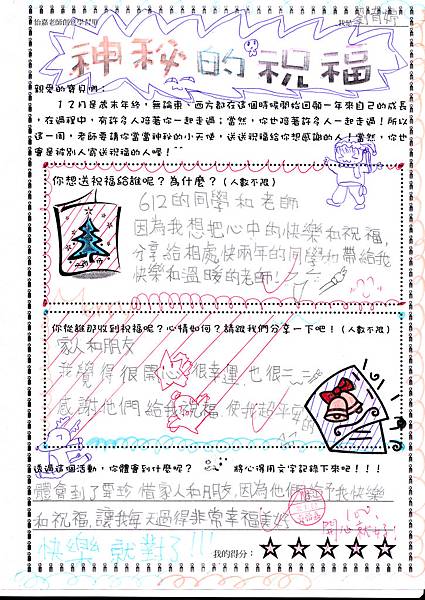 怡嘉老師的愛學習用
我是
神秘的祝福
親愛的寶貝們：
１２月是歲末年終，無論東、西方都在這個時候開始回顧一年來自己的成長
，在過程中，有許多人陪著你一起走過；當然，你也陪著許多人一起走過！所以
這一周，老師要請你當當神秘的小天使，送送祝福給你想感謝的人！當然，你也
會是被別人寄送祝福的人喔！
你想送祝福給誰呢？為什麼？(人數不限)
612的同學和老師
因為我想把心中的快樂和祝福，
分享給相處快兩年的同學和帶給我
快樂和溫暖的老師！
你從誰那收到祝福呢？心情如何？請跟我們分享一下吧！(人數不限)
家人和朋友
我覺得很開心 很幸運，也很
感謝他們給我祝福 使我超
透過這個活動，你體會到什麼呢？ 將心得用文字記錄下來吧！！！
體會到了要珍惜家人和朋友，因為他們給予我快樂
和祝福，讓我每天過得非常幸福美好
快樂就對了!!!
開心就好!
我的得分：☆☆☆☆☆